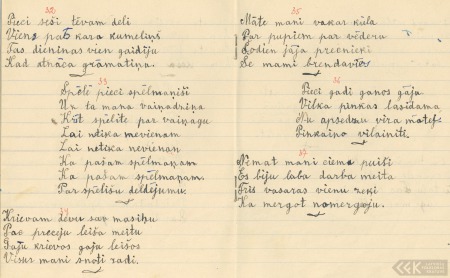 32
Pieci seši tēvam dēli
Viens pats kara kumeliņš
Tas dieniņas vien gaidīju
Kad atnāca grāmatiņa.
33
Spēlē pieci spēlmaņiši
Un ta mana vaiņadziņa
Kūt spēlite par vaiņagu
Lai netika nevienam
Lai netika nevienan
Ka pašam spēlmaņam
Ka pašam spēlmaņam.
Par spēlišu dēldējumu.
34
Krievam devu sav masiņu
Pac preceju leiša meitu
Gāju krievos gaju leišos
Visur mani snoti radi.
35
Māte mani vakar kūla
Par pupiem par vēderu
Šodien jāja precnieki
Se mami brendavīos
36
Pieci gadi ganos gāja
Vilka pinkas lasidama
Nu apsedzu vīra
Pinkaino vilainīti.
37
Nemat mani ciema puiši
Es biju laba darba meita
Trīs vasaras vienu zeķi
Ka mergot nomergoju.